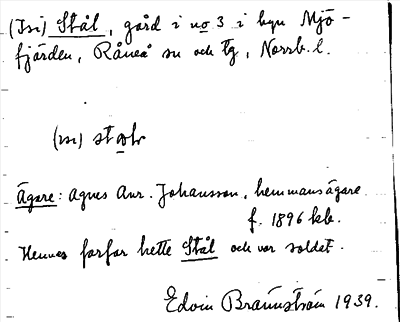 (Isi) Stål, gård i no 3 i byn Mjö-
fjärden, Råneå sn och tg, Norrb. l.
(isi)
Ägare: Agnes Anr. Johansson, hemmansägare
f. 1896 kb.
Hennes farfar hette Stål och var soldat.
Edvin Brännström 1939.